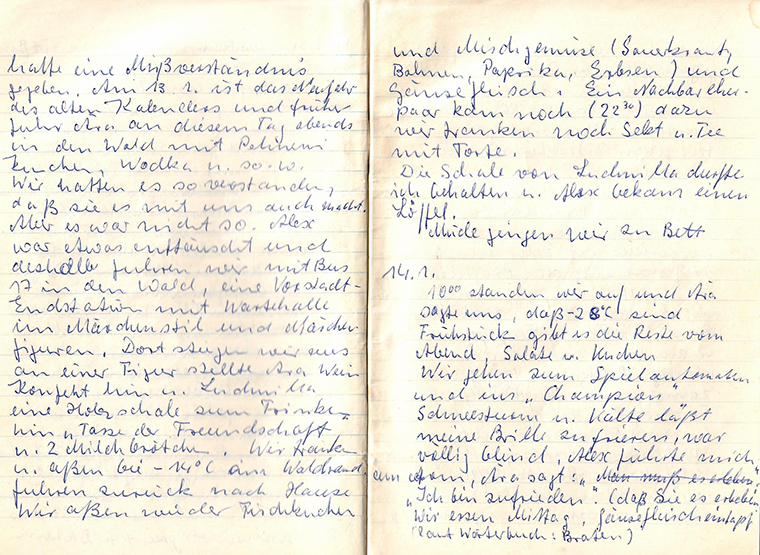 hatte eine Mißverständnis
gegeben. Am 13.1. ist das Neujahr
des alten Kalenders und früher
fuhr Ara an diesem Tag abends
in den Wald mit Palmeni
kuchen, Wodka u. so. w.
Wir hatten es so verstanden,
daß sie es mit uns auch macht.
Aber es war nicht so. Alex
war etwas enttäuscht und
deshalb fuhren wir mit Bus
17 in den Wald, eine Vorstadt-
Endstation mit Wartehalle
im Märchenstil und Märchen
figuren. Dort stiegen wir aus
an einer Figur stellte Ara Wein
Konfekt hin u. Ludmilla
eine Holzschale zum Trinken
hin „Tasse der Freundschaft
u. 2 Milchbrötchen. Wir tranken
u. aßen bei -14°C am Waldrand
fuhren zurück nach Hause
Wir aßen wieder Fischkuchen
und Mischgemüse (Sauerkraut,
Bohnen, Paprika, Erbsen) und
Gänsefleisch. Ein Nachbarehe-
paar kam noch (22³⁰) dazu
wir tranken noch Sekt u. Tee
mit Torte.
Die Schale von Ludmilla durfte
ich behalten u. Alex bekam einen
Löffel.
Müde gingen wir zu Bett
14.1.
10⁰⁰ standen wir auf und Ara
sagte uns, daß -28°C sind
Frühstück gibt es die Reste vom
Abend, Salate u. Kuchen
Wir gehen zum Spielautomaten
und ins „Champion"
Schneesturm u. Kälte läßt
meine Brille zufrieren, war
völlig blind, Alex führte mich
am Arm, Ara sagt: „Man muß es erleben"
„Ich bin zufrieden." (daß Sie es erleben
Wir essen Mittag, Gänsefleischeintopf
laut Wörterbuch: Braten)